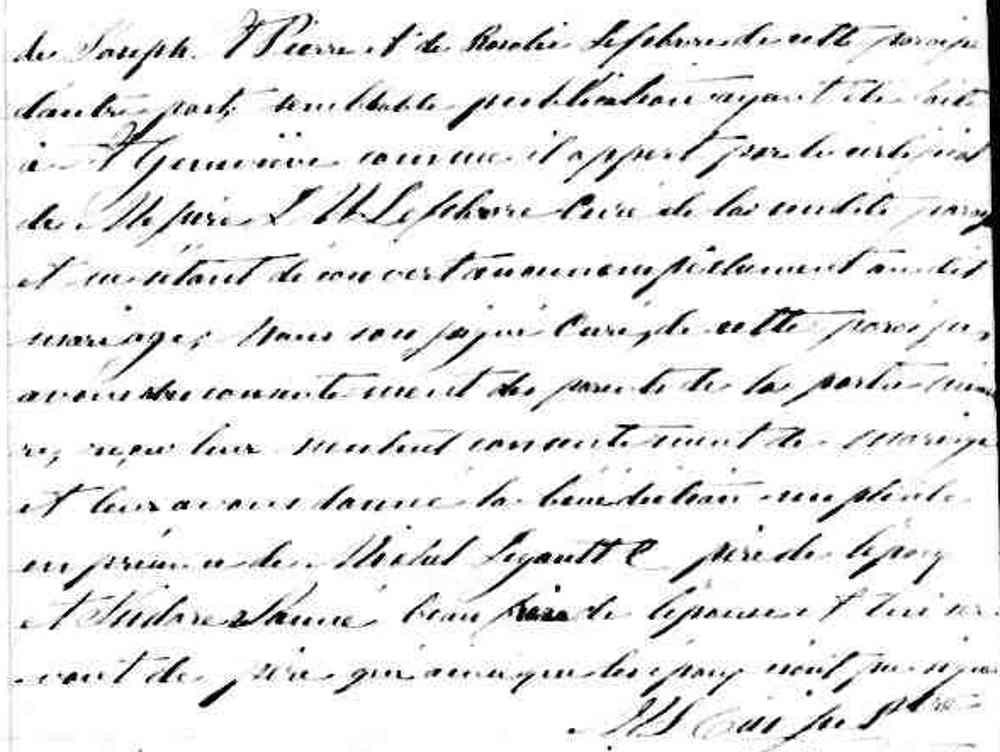 de Joseph St Pierre et de Rosalie Lefebvre de cette paroisse
d'autre part, semblable publication ayant été faite
à Ste Geneviève comme il appert par le certificat
de Messire L Lefebvre Curé de la susdite parois
et ne s'étant découvert aucun empêchement au dit
mariage, Nous soussigné Curé, de cette paroisse,
avons du consentement des parents de la partie mineu
re, reçu leur mutuel consentement de mariage
et leur avons donné la bénédiction nuptiale
en présence de Michel Legault père de l'époux
et Isidore beau frère de l'épouse et lui ser
vant de père qui ainsi que les époux n'ont pu signer
Ptre